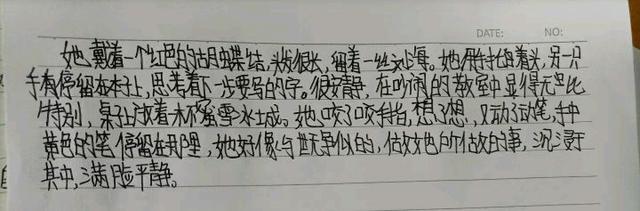 DATE: NO:
她戴着一个红色的蝴蝶结,头发很长,留着一丝刘海。她用手托着头,另一只
手停留在本子上,思考着下一步要写的字。很安静,在吵闹的教室中显得无比
特别,桌子上放着木不 雪冰土成。她咬了咬手指,想了想,又动了动笔,手中
黄色的笔停留在那里,她好像与世无争似的,做好她所做的事,沉浸于
其中,满脸平静。